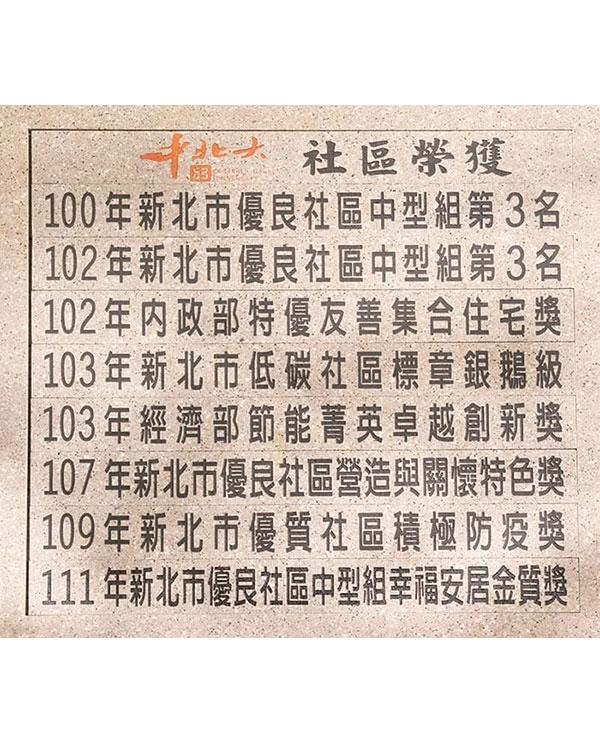 中北大 社區榮獲
100年新北市優良社區中型組第3名
102年新北市優良社區中型組第3名
102年內政部特優友善集合住宅獎
103年新北市低碳社區標章銀鵝級
103年經濟部節能菁英卓越創新獎
107年新北市優良社區營造與關懷特色獎
109年新北市優質社區積極防疫獎
111年新北市優良社區中型組幸福安居金質獎